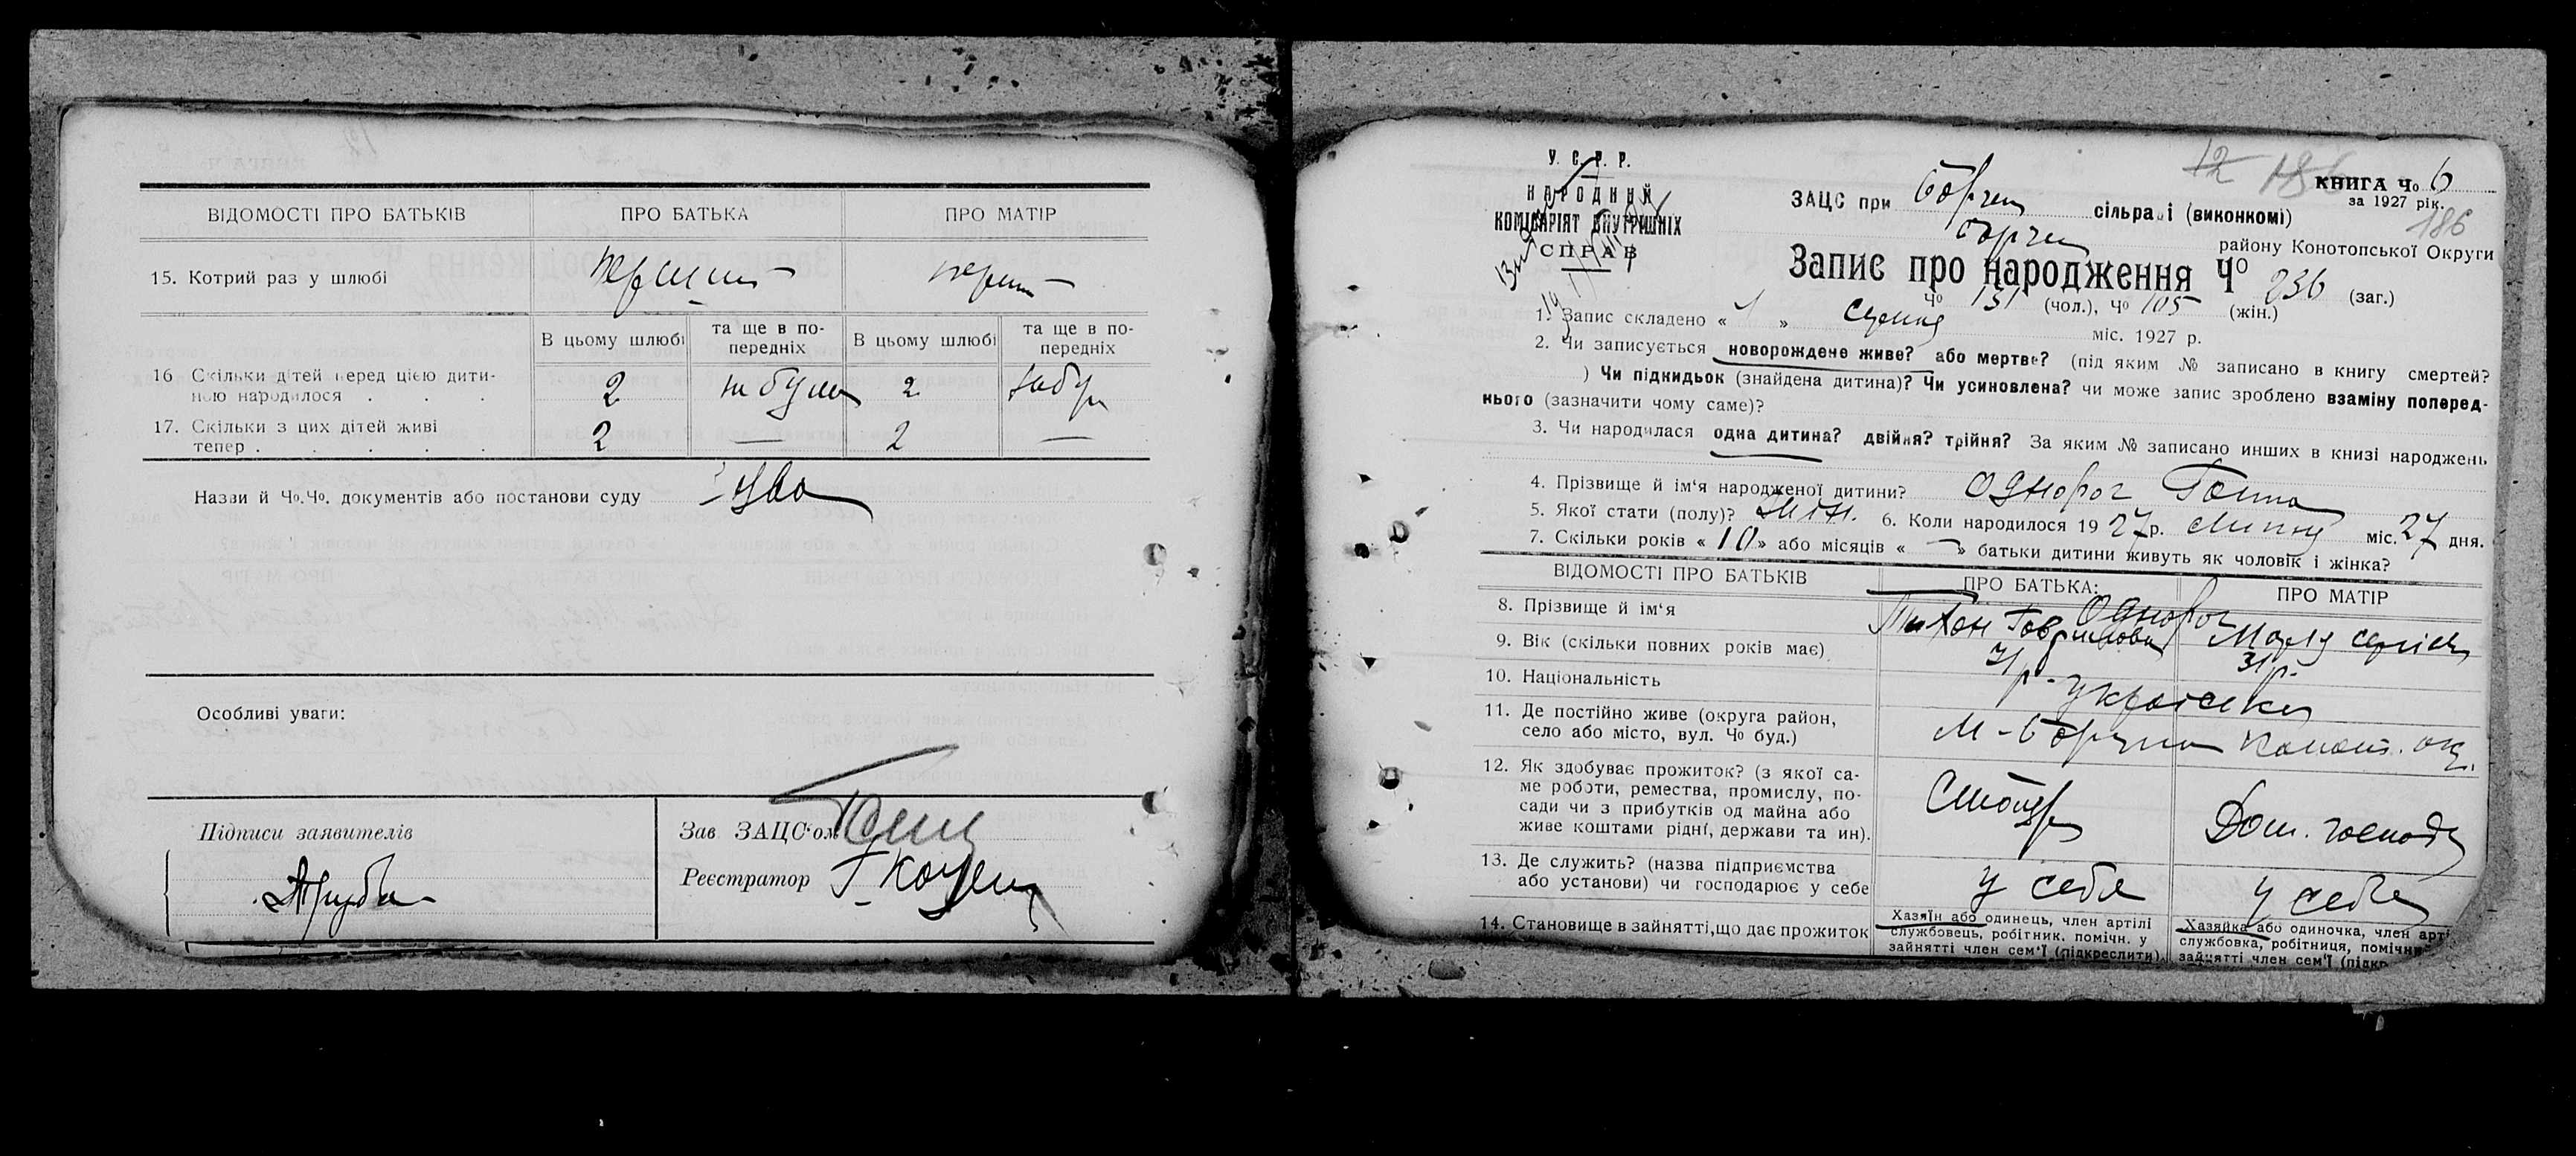 ВІДОМОСТІ ПРО БАТЬКІВ ПРО БАТЬКА ПРО МАТІР
15. Котрий раз у шлюбі
В цьому шлюбі та ще в по-передніх В цьому шлюбі та ще в по-передніх
16 Скільки дітей перед цією дити-
ною народилося . . . 2 не було 2
17. Скільки з цих дітей живі
тепер . . . . . 2 — 2 —
Назви й Чо.Чо. документів або постанови суду
Особливі уваги:
Підписи заявителів
Зав ЗАЦС'ом
Реєстратор
У. С. Р. Р.
НАРОДНИЙ
КОМІСАРІЯТ ВНУТРІШНІХ
СПРАВ
12
186
КНИГА Чо 6
за 1927 рік.
ЗАЦС при Борзен сільраді (виконкомі)
Борзен району Конотопської Округи
Запис про народження Чо 236 (заг.)
Чо 131 (чол.), Чо 105 (жін.)
1. Запис складено « » серпня міс. 1927 р.
2. Чи записується новорождене живе? або мертве? (під яким № записано в книгу смертей?
) Чи підкидьок (знайдена дитина)? Чи усиновлена? чи може запис зроблено взаміну поперед-
нього (зазначити чому саме)?
3. Чи народилася одна дитина? двійня? трійня? За яким № записано инших в книзі народжень
4. Прізвище й ім'я народженої дитини? Однорог
5. Якої стати (полу)? Жін. 6. Коли народилося 1927 р. липня міс. 27 дня.
7. Скільки років « 10 » або місяців « — » батьки дитини живуть як чоловік і жінка?
ВІДОМОСТІ ПРО БАТЬКІВ ПРО БАТЬКА: ПРО МАТІР
8. Прізвище й ім'я Однорог
Тихон Гаврилович
9. Вік (скільки повних років має) 31 р. 31 р.
10. Національність українськ
11. Де постійно живе (округа район,
село або місто, вул. Чо буд.) м-Борзна Конот. окр.
12. Як здобуває прожиток? (з якої са-
ме роботи, ремества, промислу, по-
сади чи з прибутків од майна або
живе коштами рідні, держави та ин). Столяр Дом. господ
13. Де служить? (назва підприємства
або установи) чи господарює у себе у себе у себе
14. Становище в зайнятті, що дає прожиток
Хазяїн або одинець, член артілі
службовець, робітник. помічн. у
зайнятті член сем'ї (підкреслити)
Хазяйка або одиночка, член арті
службовка, робітниця, помічни
зайнятті член сем'ї (підкр